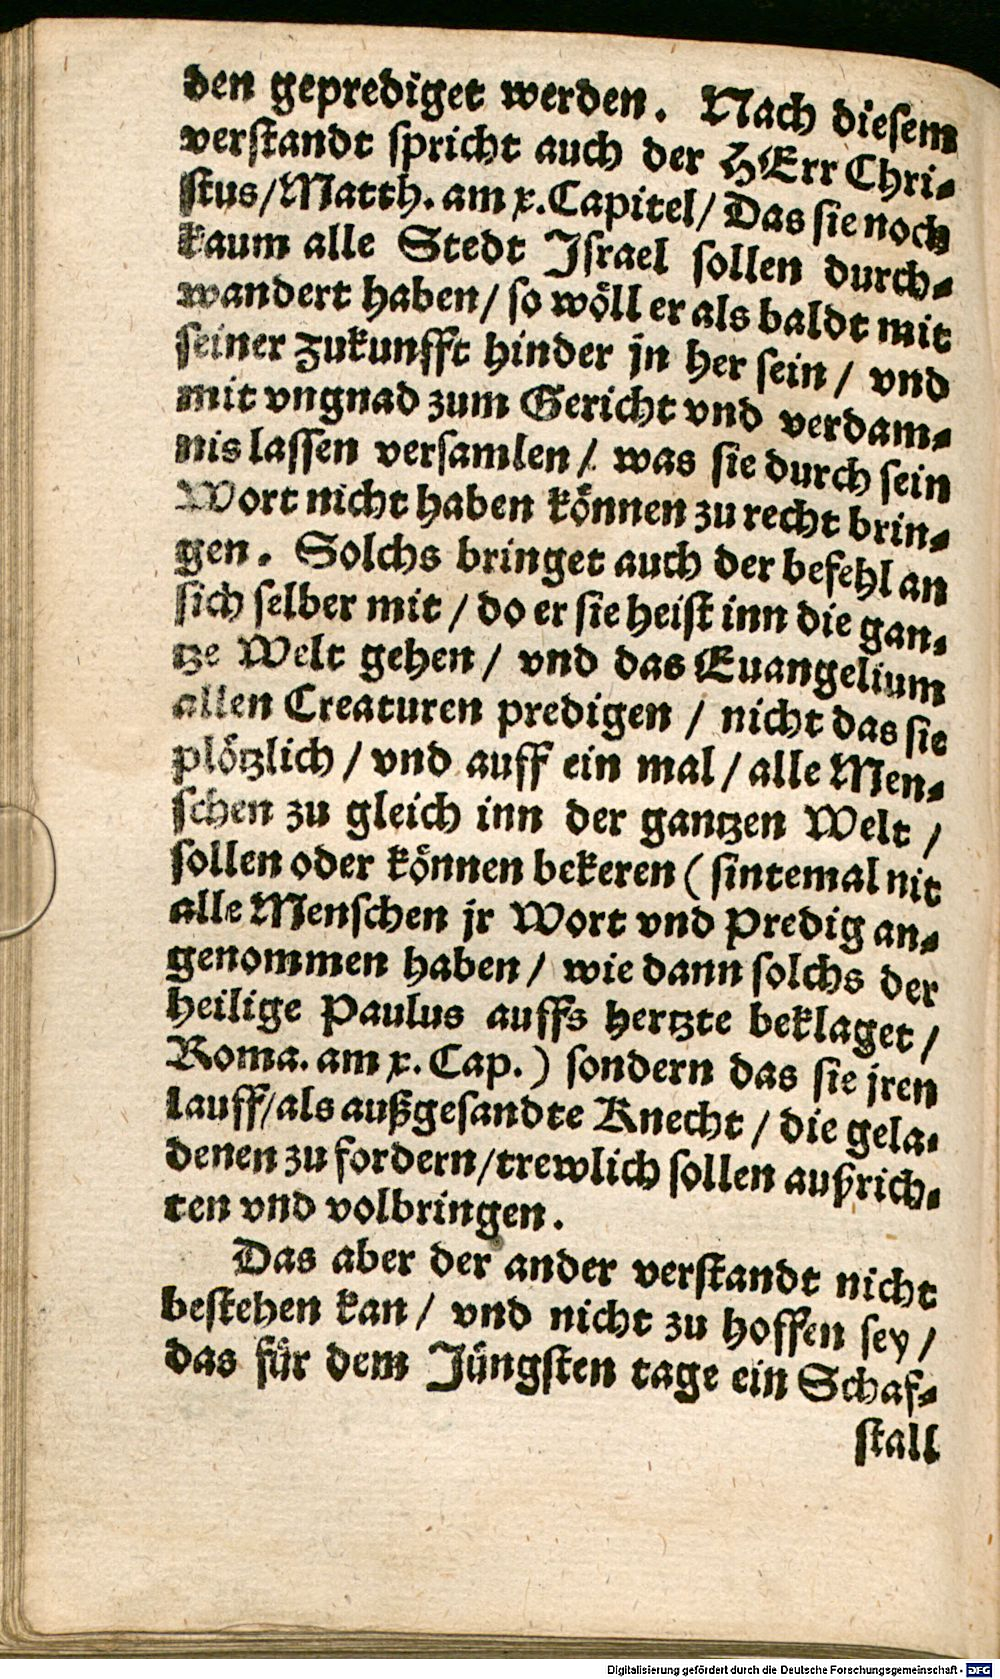 den geprediget werden. Nach diesem
verstandt spricht auch der HErr Chri-
stus/Matth. am x. Capitel/ Das sie noch
kaum alle Stedt Israel sollen durch-
wandert haben/ so wöll er als baldt mit
seiner zukunfft hinder jn her sein / vnd
mit vngnad zum Gericht vnd verdam-
nis lassen versamlen / was sie durch sein
Wort nicht haben können zu recht brin-
gen. Solchs bringet auch der befehl an
sich selber mit / do er sie heist inn die gan-
tze Welt gehen / vnd das Euangelium
allen Creaturen predigen / nicht das sie
plötzlich / vnd auff ein mal / alle Men-
schen zu gleich inn der gantzen Welt /
sollen oder können bekeren ( sintemal nit
alle Menschen jr Wort vnd Predig an-
genommen haben / wie dann solchs der
heilige Paulus auffs hertzte beklaget /
Roma. am x. Cap. ) sondern das sie jren
lauff/als außgesandte Knecht / die gela-
denen zu fordern/trewlich sollen außrich-
ten vnd volbringen.
Das aber der ander verstandt nicht
bestehen kan / vnd nicht zu hoffen sey /
das für dem Jüngsten tage ein Schaf-
stall
Digitalisierung gefördert durch die Deutsche Forschungsgemeinschaft - DFG